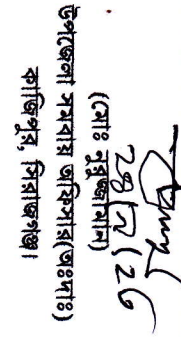 ২৪/৭/২৬
(মোঃ নুরুজ্জামান)
উপজেলা সমবায় অফিসার(অঃদাঃ)
কাজিপুর, সিরাজগঞ্জ।